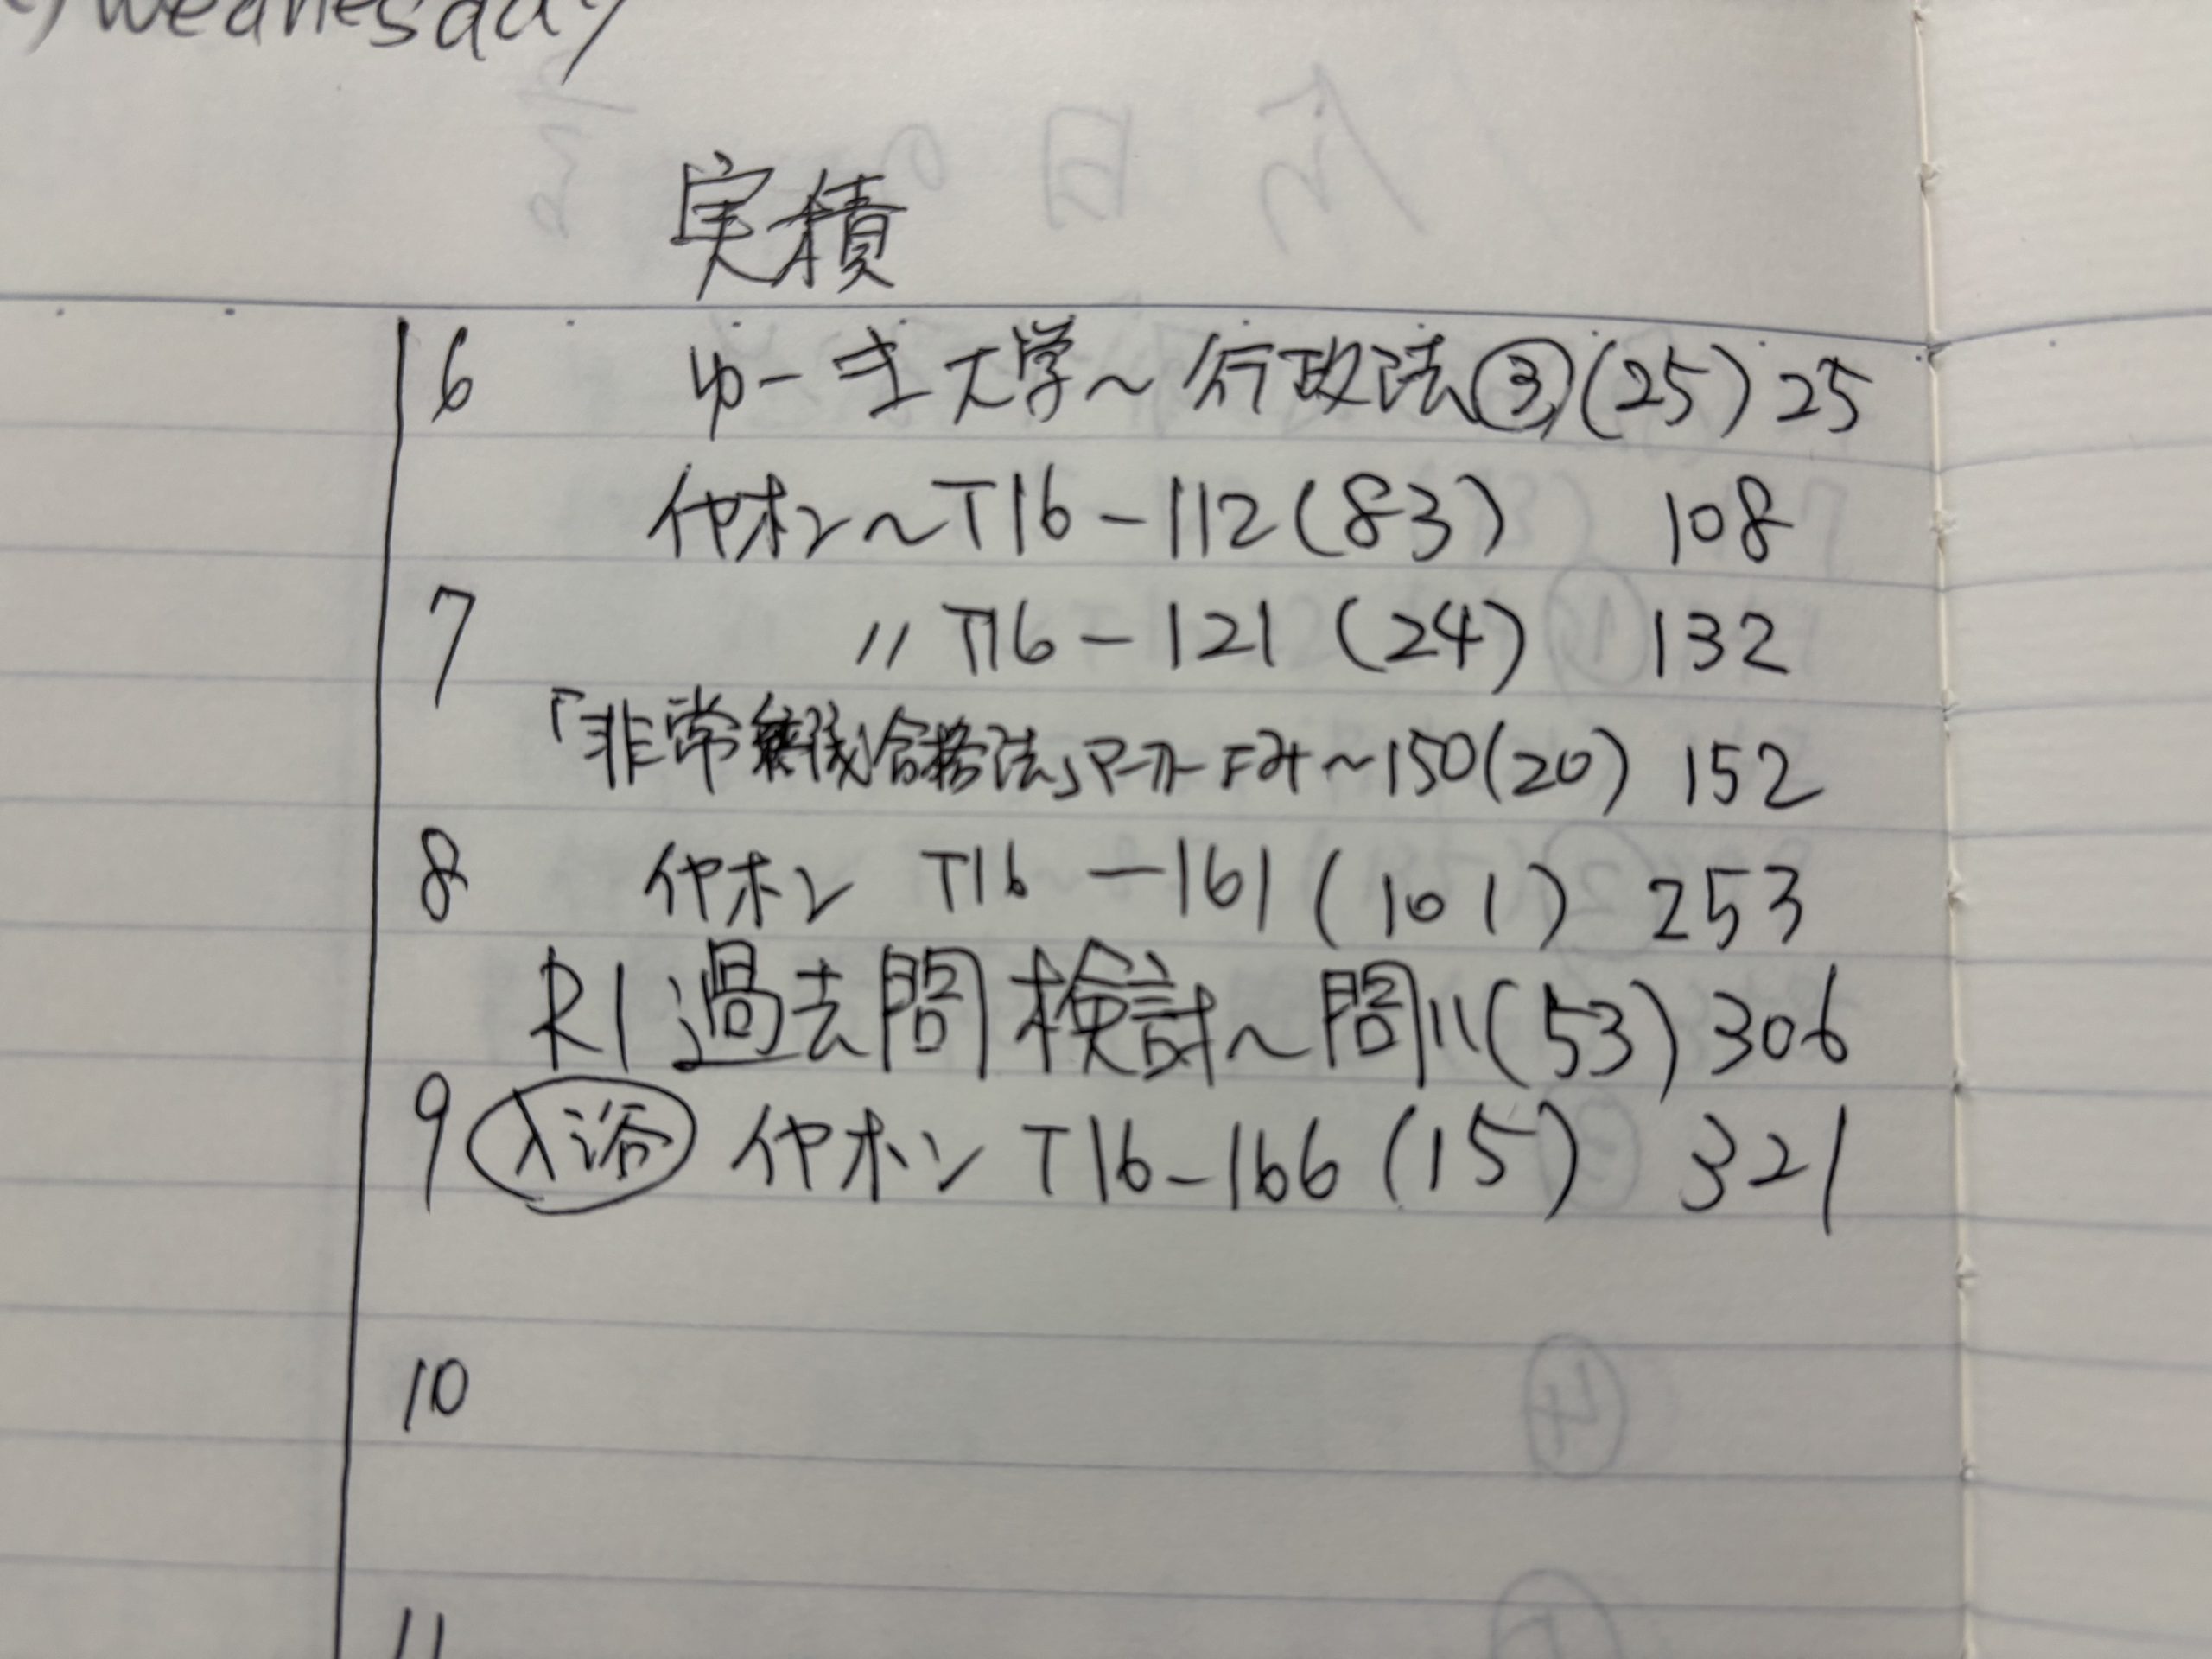 Wednesday
実積
6 ゆーき大学～行政法③(25) 25
イヤホン～T16-112(83) 108
7 〃 T16-121(24) 132
「非常識合格法」マーカー ～150(20) 152
8 イヤホン T16-161(101) 253
R1過去問検討～問11(53) 306
9 入浴 イヤホン T16-166(15) 321
10
11